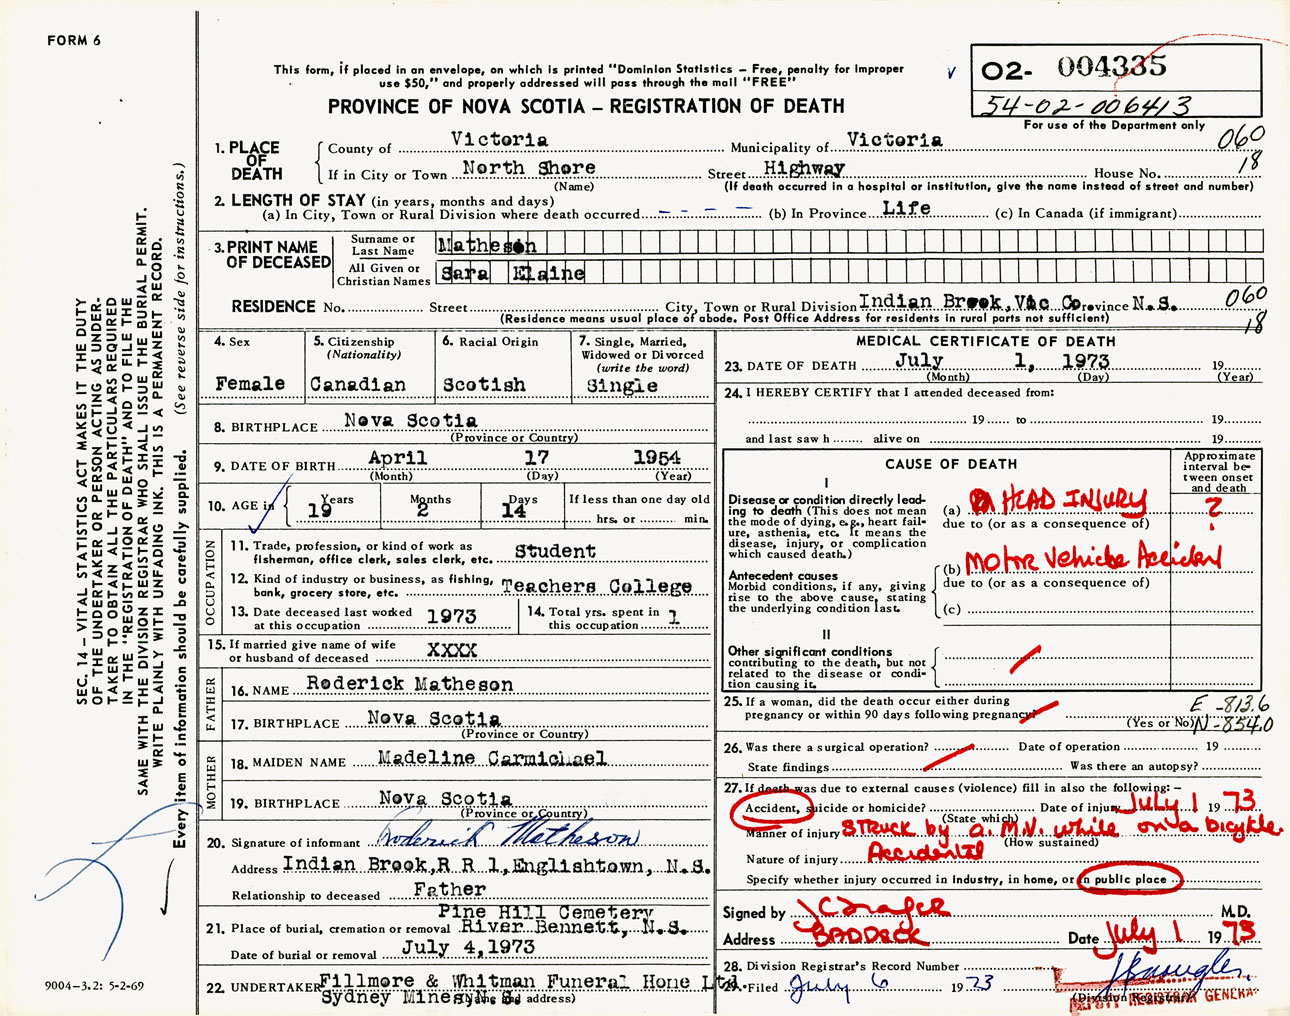 FORM 6
This form, if placed in an envelope, on which is printed "Dominion Statistics – Free, penalty for improper
use $50," and properly addressed will pass through the mail "FREE"
PROVINCE OF NOVA SCOTIA – REGISTRATION OF DEATH
O2- 004335
54-02-006413
For use of the Department only
060
18
1. PLACE OF DEATH
County of Victoria Municipality of Victoria
If in City or Town North Shore Street Highway House No.
(Name) (If death occurred in a hospital or institution, give the name instead of street and number)
2. LENGTH OF STAY (in years, months and days)
(a) In City, Town or Rural Division where death occurred - - - - (b) In Province Life (c) In Canada (if immigrant)
3. PRINT NAME OF DECEASED
Surname or Last Name Matheson
All Given or Christian Names Sara Elaine
RESIDENCE No. Street City, Town or Rural Division Indian Brook, Vic Co. Province N.S.
(Residence means usual place of abode. Post Office Address for residents in rural parts not sufficient)
060
18
4. Sex Female
5. Citizenship (Nationality) Canadian
6. Racial Origin Scotish
7. Single, Married, Widowed or Divorced (write the word) Single
8. BIRTHPLACE Nova Scotia
(Province or Country)
9. DATE OF BIRTH April 17 1954
(Month) (Day) (Year)
10. AGE in Years 19 Months 2 Days 14 If less than one day old
hrs. or min.
OCCUPATION
11. Trade, profession, or kind of work as
fisherman, office clerk, sales clerk, etc. Student
12. Kind of industry or business, as fishing,
bank, grocery store, etc. Teachers College
13. Date deceased last worked
at this occupation 1973
14. Total yrs. spent in
this occupation 1
15. If married give name of wife
or husband of deceased XXXX
FATHER
16. NAME Roderick Matheson
17. BIRTHPLACE Nova Scotia
(Province or Country)
MOTHER
18. MAIDEN NAME Madeline Carmichael
19. BIRTHPLACE Nova Scotia
(Province or Country)
20. Signature of informant Roderick Matheson
Address Indian Brook, R R 1, Englishtown, N.S.
Relationship to deceased Father
Pine Hill Cemetery
21. Place of burial, cremation or removal River Bennett, N.S.
Date of burial or removal July 4, 1973
22. UNDERTAKER Fillmore & Whitman Funeral Home Ltd.
Sydney Mines, N.S.
(Name and address)
MEDICAL CERTIFICATE OF DEATH
23. DATE OF DEATH July 1, 1973 19
(Month) (Day) (Year)
24. I HEREBY CERTIFY that I attended deceased from:
19 to 19
and last saw h alive on 19
CAUSE OF DEATH
Approximate interval between onset and death
I
Disease or condition directly leading to death (This does not mean the mode of dying, e.g., heart failure, asthenia, etc. It means the disease, injury, or complication which caused death.)
(a) HEAD INJURY ?
due to (or as a consequence of)
Antecedent causes
Morbid conditions, if any, giving rise to the above cause, stating the underlying condition last.
(b) Motor Vehicle Accident
due to (or as a consequence of)
(c)
II
Other significant conditions
contributing to the death, but not related to the disease or condition causing it.
25. If a woman, did the death occur either during
pregnancy or within 90 days following pregnancy?
(Yes or No)
E -813.6
N-854.0
26. Was there a surgical operation? Date of operation 19
State findings Was there an autopsy?
27. If death was due to external causes (violence) fill in also the following: –
Accident, suicide or homicide? Date of injury July 1 1973
(State which)
Manner of injury STRUCK by a. M.V. while on a bicykle.
(How sustained)
Nature of injury Accidental
Specify whether injury occurred in Industry, in home, or in public place
Signed by M.D.
Address BADDECK Date July 1 1973
28. Division Registrar's Record Number
29. Filed July 6 1973
(Division Registrar)
DEPUTY REGISTRAR GENERAL
SEC. 14 – VITAL STATISTICS ACT MAKES IT THE DUTY
OF THE UNDERTAKER OR PERSON ACTING AS UNDER-
TAKER TO OBTAIN ALL THE PARTICULARS REQUIRED
IN THE "REGISTRATION OF DEATH" AND TO FILE THE
SAME WITH THE DIVISION REGISTRAR WHO SHALL ISSUE THE BURIAL PERMIT.
WRITE PLAINLY WITH UNFADING INK. THIS IS A PERMANENT RECORD.
Every item of information should be carefully supplied. (See reverse side for instructions.)
9004-3.2: 5-2-69